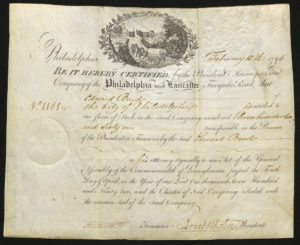 Philadelphia February 1796
BE IT HEREBY CERTIFIED, by the President Managers and
Company of the Philadelphia and Lancaster Turnpike Road, that
Edward Burd
the City of Philadelphia is entitled to
Share of Stock in the said Company, numbered Eleven hundred
and Sixty one transferable in the Presence
of the President or Treasurer by the said Edward Burd
this Money agreeably to an Act of the General
Assembly of the Commonwealth of Pennsylvania, passed the Ninth
Day of April, in the Year of our Lord One thousand Seven Hundred
and Ninety two, and the Charter of said Company. Sealed with
the common Seal of the said Company.
Treasurer President